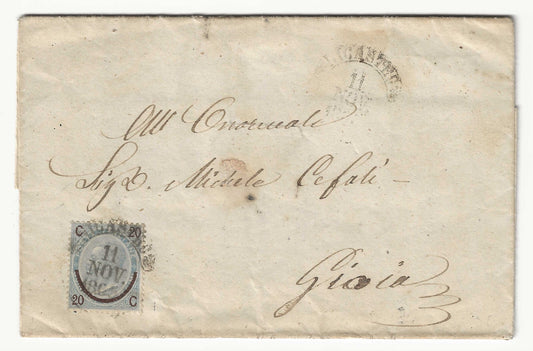 11
NOV
All' Onorevole
Sig. D. Michele Cefalì
C 20
11
NOV
20 C
Gioia